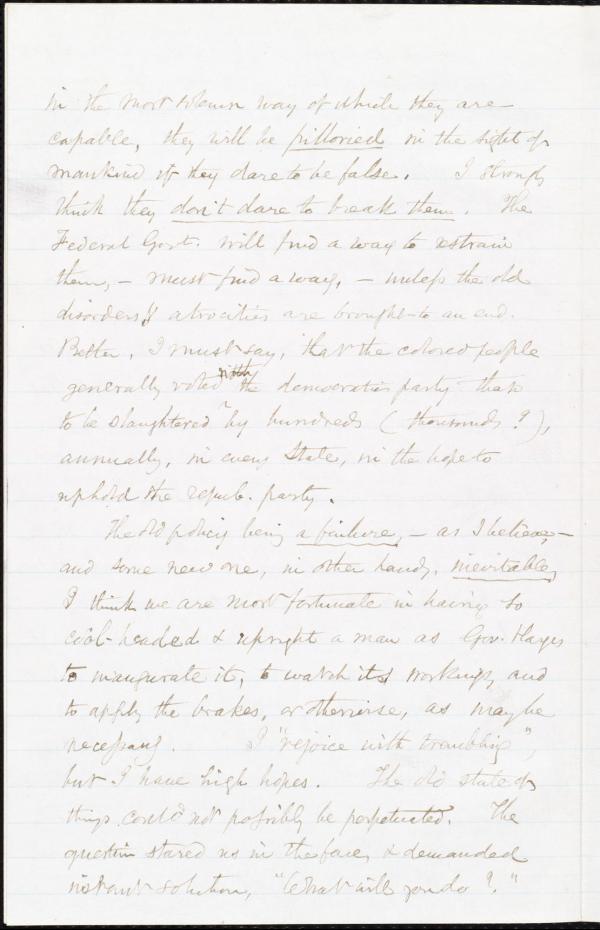 in the most solemn way of which they are
capable, they will be pilloried in the sight of
mankind if they dare to be false. I strongly
think they don't dare to break them. The
Federal Govt. will find a way to restrain
them, – must find a way, – unless the old
disorders & atrocities are brought to an end.
Better, I must say, that the colored people
generally voted with the democratic party than
to be slaughtered by hundreds (thousands?),
annually, in every State, in the hope to
uphold the repub. party.
The old policy being a failure, – as I believe, –
and some new one, in other hands, inevitable,
I think we are most fortunate in having so
cool-headed & upright a man as Gov. Hayes
to inaugurate it, to watch its workings, and
to apply the brakes, or otherwise, as may be
necessary. I "rejoice with trembling",
but I have high hopes. The old state of
things could not possibly be perpetuated. The
question stared us in the face, & demanded
instant solution, "What will you do?"